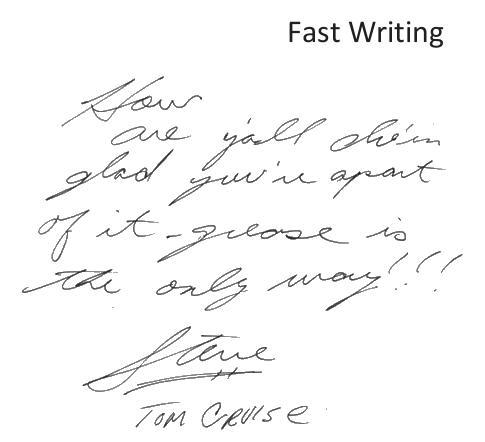 Fast Writing
How
are ya'll do'in
glad you're apart
of it - grease is
the only way!!!
Steve
TOM CRUISE